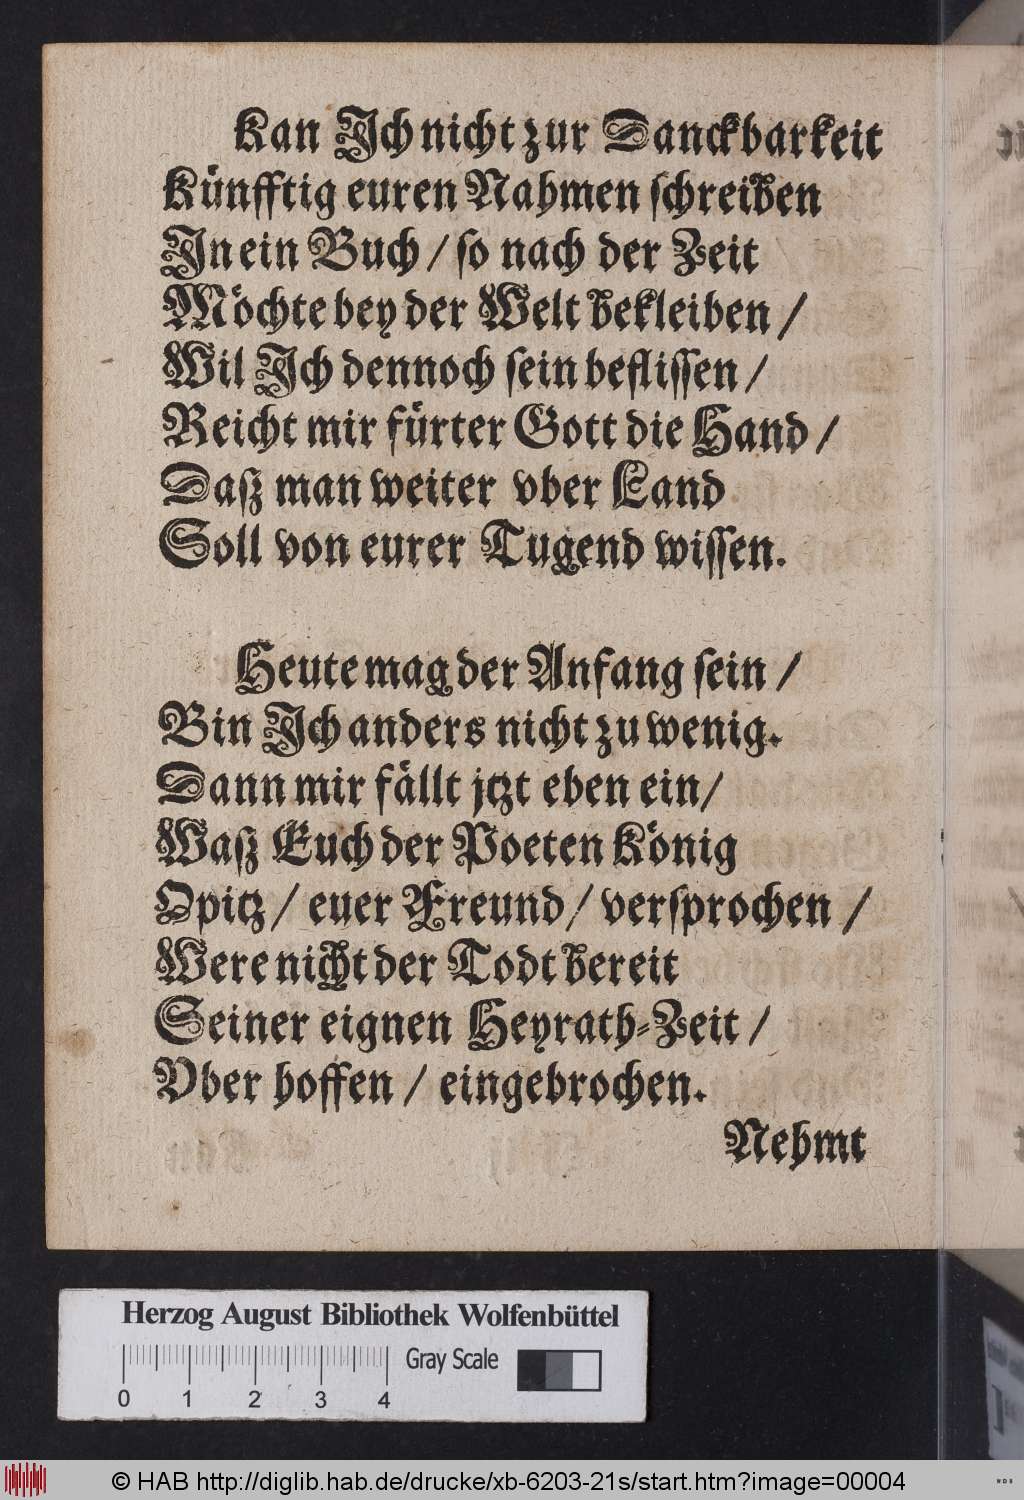 Kan Jch nicht zur Danckbarkeit
Künfftig euren Nahmen schreiben
Jn ein Buch / so nach der Zeit
Möchte bey der Welt bekleiben /
Wil Jch dennoch sein beflissen /
Reicht mir fürter Gott die Hand /
Dasz man weiter vber Land
Soll von eurer Tugend wissen.
Heute mag der Anfang sein /
Bin Jch anders nicht zu wenig.
Dann mir fällt jtzt eben ein /
Wasz Euch der Poeten König
Opitz / euer Freund / versprochen /
Were nicht der Todt bereit
Seiner eignen Heyrath-Zeit /
Vber hoffen / eingebrochen.
Nehmt
Herzog August Bibliothek Wolfenbüttel
Gray Scale
0 1 2 3 4
© HAB http://diglib.hab.de/drucke/xb-6203-21s/start.htm?image=00004